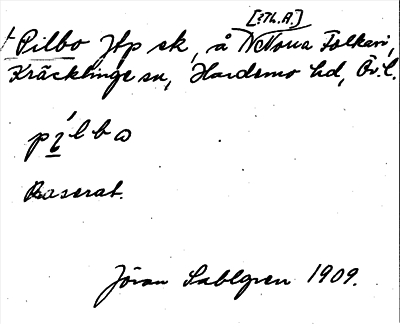 [?Th.A.]
Pilbo Jtp sk, å NvTorra Folkavi,
Kräcklinge sn, Hardemo hd, Ör. l.
pílbo
Raserat.
Jöran Sahlgren 1909.